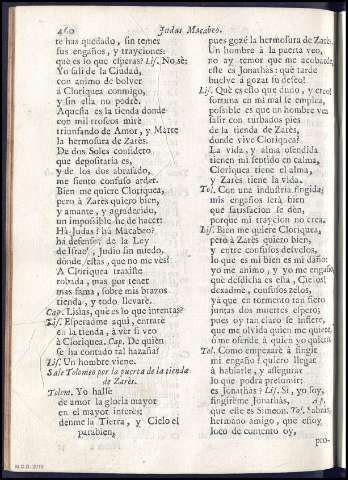 460
Judas Macabeo.
te has quedado, sin temer
sus engaños, y trayciones:
què es lo que esperas? Lis. No sè:
Yo salí de la Ciudad,
con animo de bolver
à Cloriquea conmigo,
y sin ella no podrè.
Aquesta es la tienda donde
con mil trofeos mirè
triunfando de Amor, y Marte
la hermosura de Zarès.
De dos Soles considero
que depositaria es,
y de los dos abrasado,
me siento confuso arder.
Bien me quiere Cloriquea,
pero à Zarès quiero bien,
y amante, y agradecido,
un impossible he de hacer:
Ha Judas! ha Macabeo!
ha defensor de la Ley
de Israèl, Judio sin miedo,
donde estàs, que no me vès?
A Cloriquea traxiste
robada, mas por tener
mas fama, sobre mis brazos
tienda, y todo llevarè.
Cap. Lisias, què es lo que intentas?
Lis. Esperadme aqui, entrarè
en la tienda, à vèr si veo
à Cloriquea. Cap. De quien
se ha contado tal hazaña?
Lis. Un hombre viene.
Sale Tolomeo por la puerta de la tienda
de Zarès.
Tolom. Yo hallè
de amor la gloria mayor
en el mayor interès:
denme la Tierra, y Cielo el
parabien,
pues gozè la hermosura de Zarès.
Un hombre à la puerta veo,
no ay temor que me acobarde,
este es Jonathàs: què tarde
buelve à gozar su deseo!
Lis. Què es esto que dudo, y creo!
fortuna en mi mal se emplea,
possible es que un hombre vea
salir con turbados pies
de la tienda de Zarès,
donde vive Cloriquea!
La vida, y alma ofendida
tienen mi sentido en calma,
Cloriquea tiene el alma,
y Zarès tiene la vida.
Tol. Con una industria fingida
mis engaños serà bien
que satisfacion se dèn,
porque mi traycion no crea.
Lis. Bien me quiere Cloriquea,
pero à Zarès quiero bien,
y entre confusos desvelos,
lo que es mi bien es mi daño:
yo me animo, y yo me engaño,
què desdicha es esta, Cielos!
dexadme, confusos zelos,
yà que en tormento tan fiero
juntas dos muertes espero,
pues oy tan claro se infiere,
que me olvida quien me quiere,
ù me ofende à quien yo quiero.
Tol. Como empezarè à fingir
mi engaño? quiero llegar
à hablarle, y assegurar
lo que podrà presumir:
es Jonathàs? Lis. Si, yo soy,
fingirème Jonathàs, Ap.
que este es Simeon. Tol. Sabràs,
hermano amigo, que estoy
loco de contento oy,
pro-